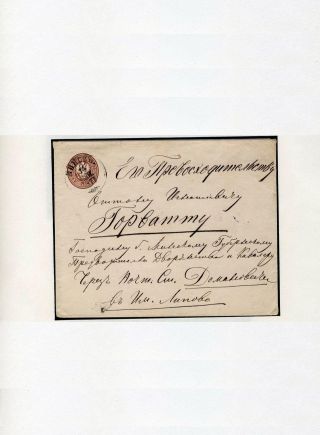 Его Превосходительству
Оттону Игнатьевичу
Горватту
Господину б. Минскому Губернскому
Предводителю Дворянства и Кавалеру
Чрезъ Почт. Ст. Домановичи
въ Им. Липово